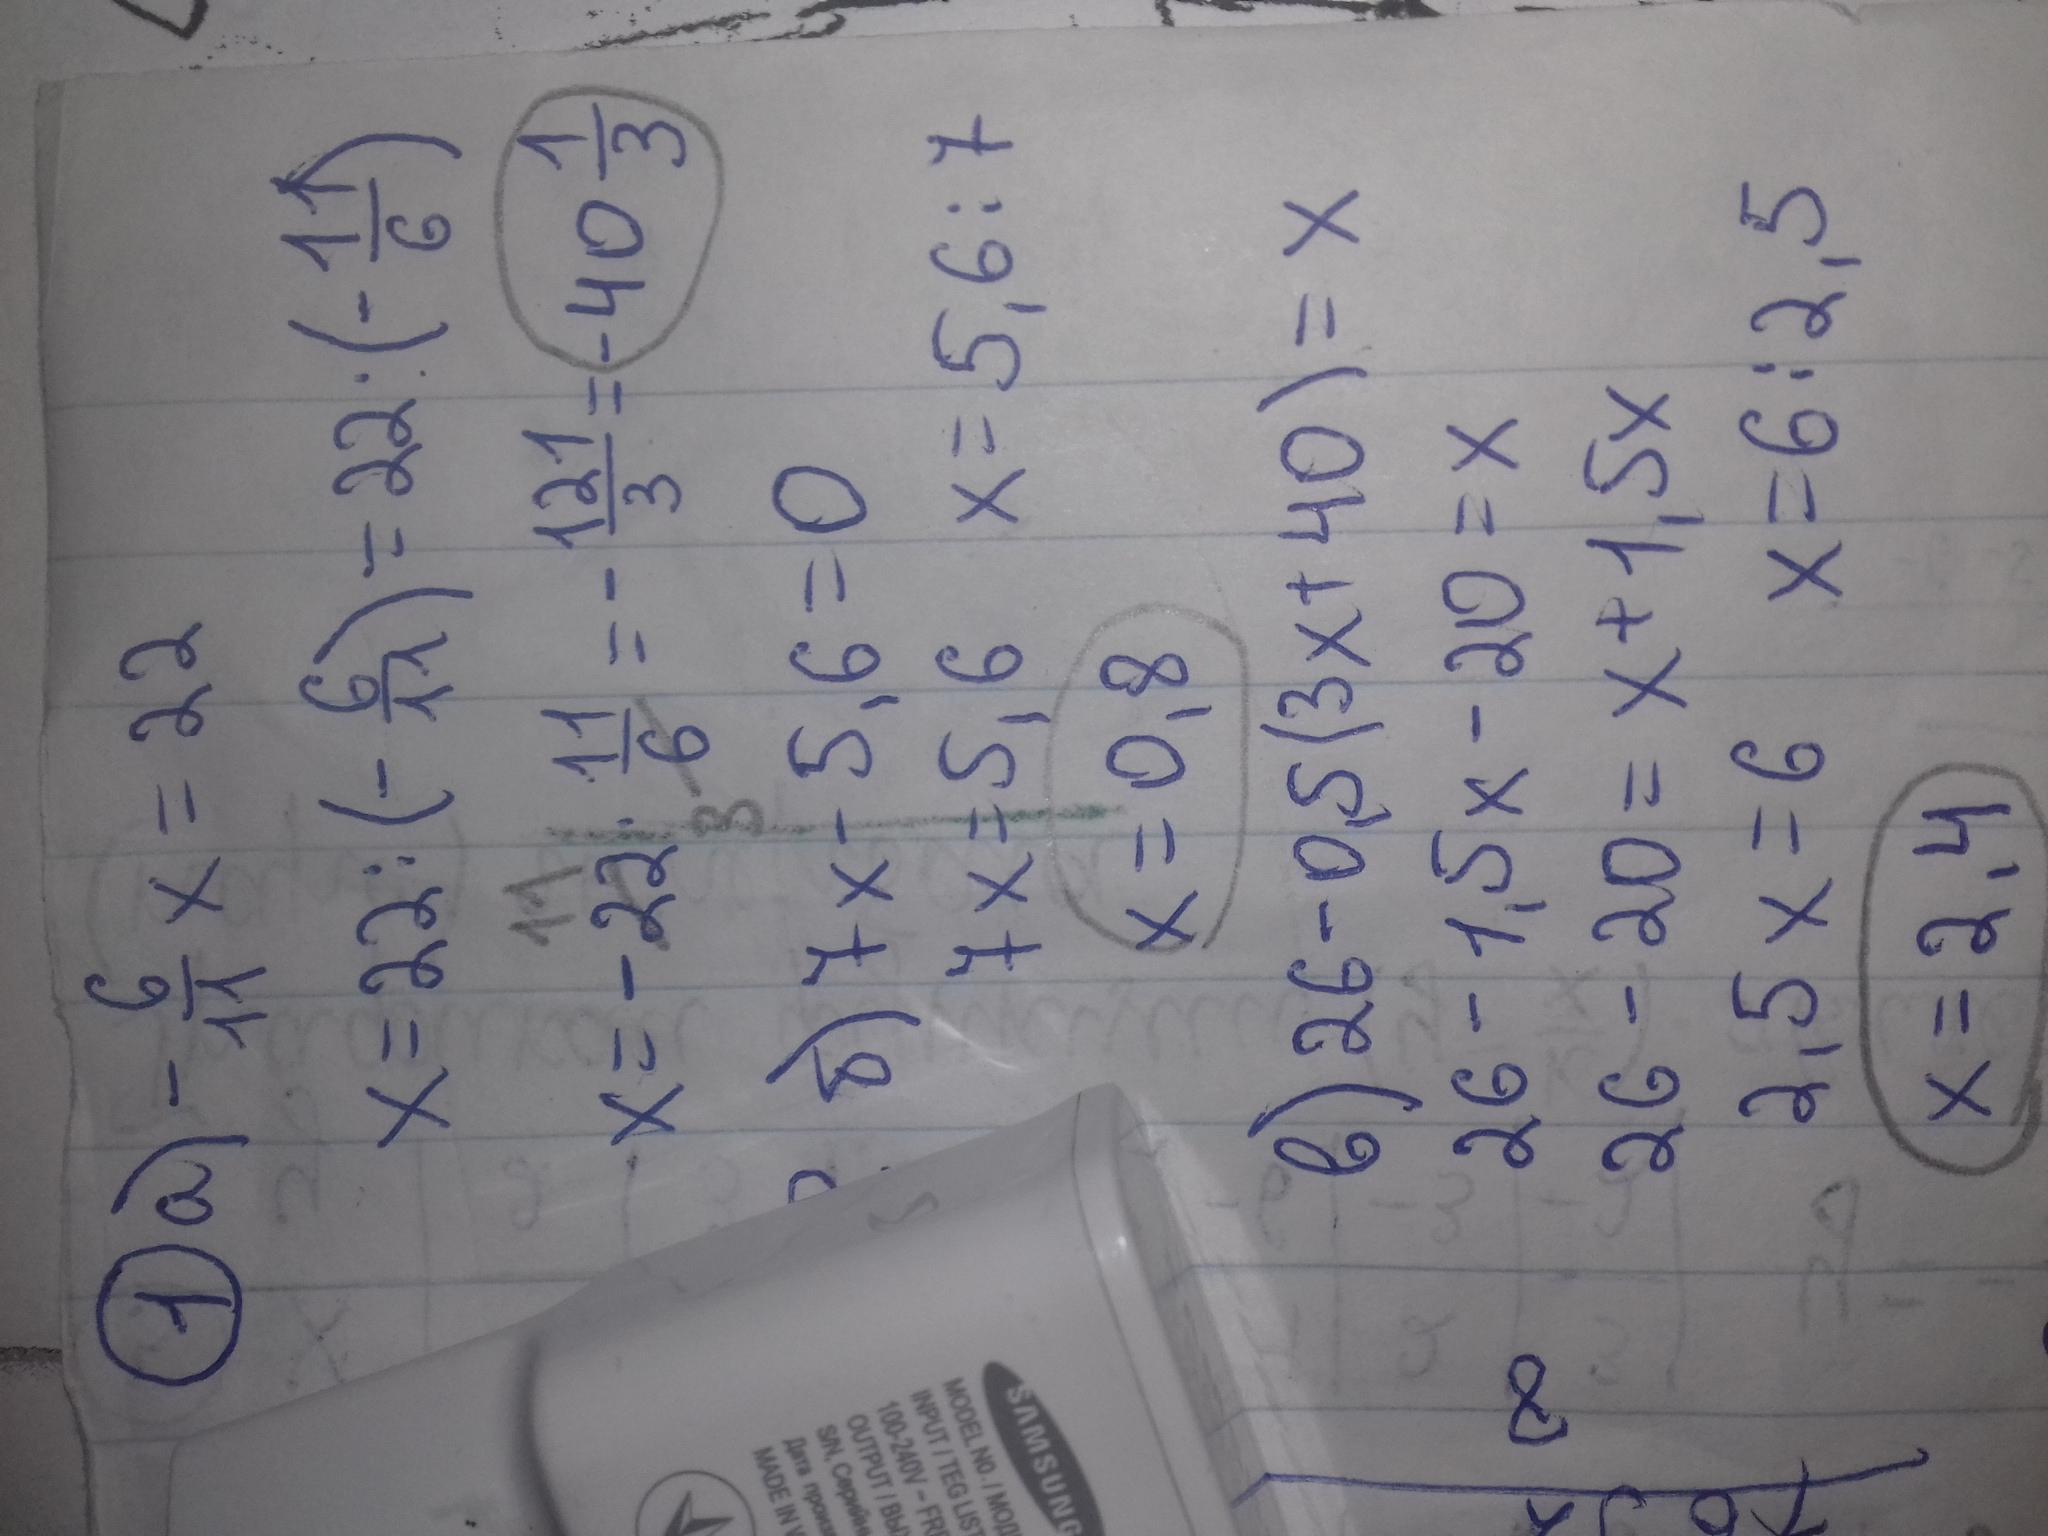 1 а) - 6/11 x = 22
x = 22 : (- 6/11) = 22 · (- 11/6)
11
x = - 22 · 11/6 = - 121/3 = - 40 1/3
3
б) 7x - 5,6 = 0
7x = 5,6 x = 5,6 : 7
x = 0,8
в) 26 - 0,5(3x + 40) = x
26 - 1,5x - 20 = x
26 - 20 = x + 1,5x
2,5x = 6 x = 6 : 2,5
x = 2,4
8
SAMSUNG
MODEL NO. /
INPUT /
100-240V ~
OUTPUT /
S/N,
Дата
MADE IN